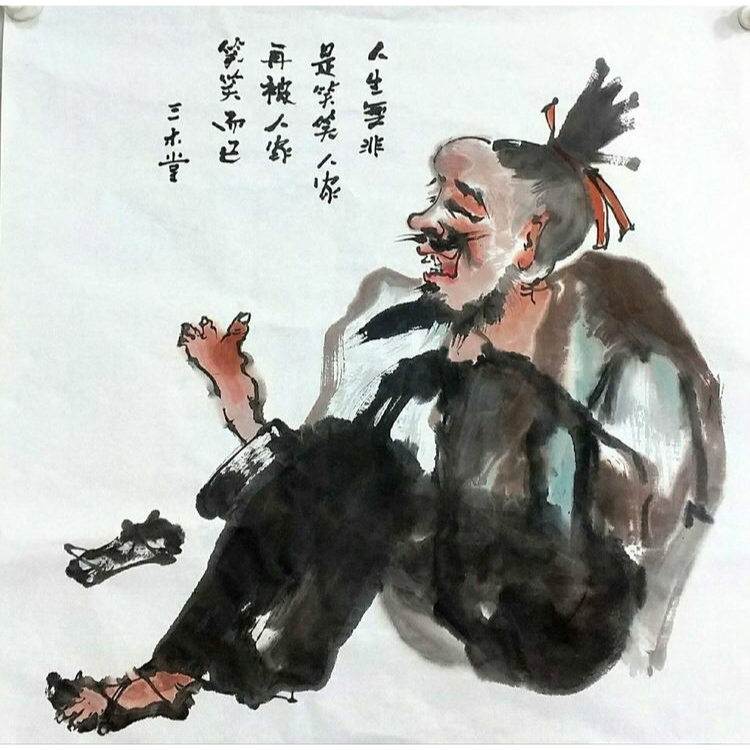 人生無非
是笑笑人家
再被人家
笑笑而已
三木堂